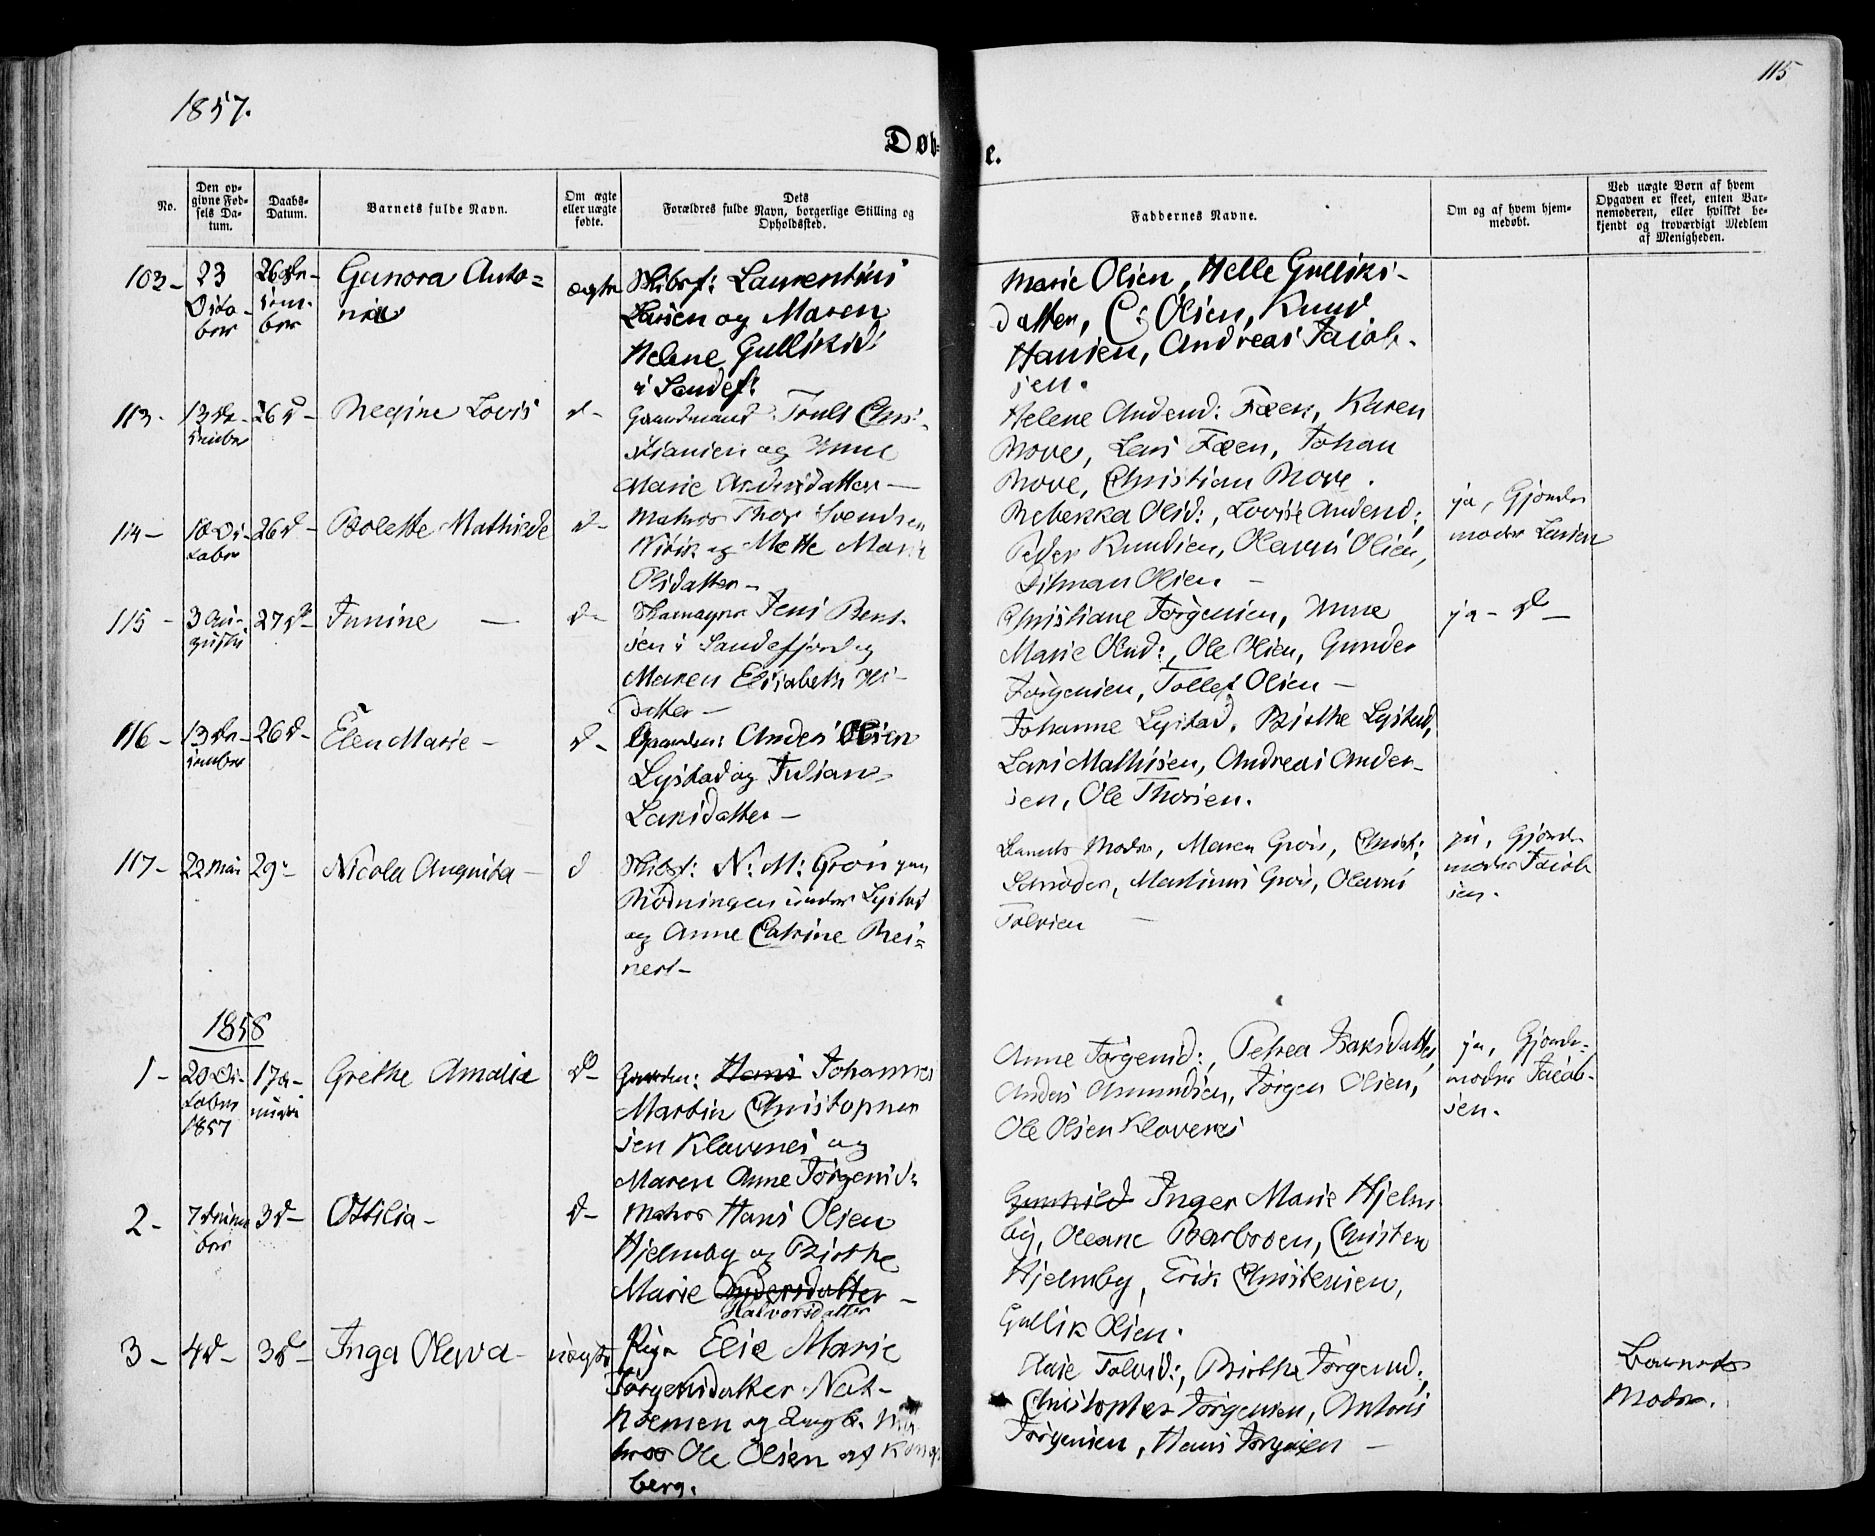 115
1857.
Døb- e.
No.
Den op-
givne Fød-
sels Da-
tum.
Daabs-
Datum.
Barnets fulde Navn.
Om ægte
eller uægte
fødte.
Dets
Forældres fulde Navn, borgerlige Stilling og
Opholdssted.
Faddernes Navne.
Om og af hvem hjem-
medøbt.
Ved uægte Børn af hvem
Opgaven er skeet, enten Bar-
nemoderen, eller hvilket be-
kjendt og troværdigt Medlem
af Menigheden.
103-
23
Octo-
ber
26 De-
cem-
ber
Gunora Anto-
nia
ægte
Skibsf: Laurentius
Larsen og Maren
Helene Gulliksd:
i Sandef:
Marie Olsen, Helle Gulliks-
datter, C: Olsen, Knud
Hansen, Andreas Jacob-
sen.
113-
13 De-
cember
26 d-
Regine Lovis
d-
Gaardmand Truls Chri-
stiansen og Anne
Marie Andersdatter-
Helene Andersd: Foen, Karen
Rove, Lars Foen, Johan
Rove, Christian Rove.
114-
18 Oc-
tober
26 d-
Bolette Mathilde
d-
Matros Thor Svendsen
og Mette Marie
Olsdatter-
Rebekka Olsd:, Lovise Andersd:,
Peder Knudsen, Olavus Olsen,
Ditman Olsen-
ja, Gjorde-
moder Larsen
115-
3 Au-
gusti
27 d-
Junine-
d-
Jens Bent-
sen i Sandefjord og
Maren Elisabeth Ols-
datter-
Christiane Jørgensen, Anne
Marie Olsd:, Ole Olsen, Gunder
Jørgensen, Tollef Olsen-
ja- d-
116-
13 De-
cember
26 d-
Elen Marie-
d-
Gaardm: Anders Olsen
Lystad og Juliane
Larsdatter-
Johanne Lystad, Birthe Lystad,
Lars Mathisen, Andreas Ander-
sen, Ole Thorsen.
117-
22 Mai
29-
Nicola Augusta-
d
Skibsf: N: M: Grøn paa
Rødningen under Lystad
og Anne Catrine Rei-
nert-
Barnets Moder, Maren Grøn, Christ:
Schrøder, Martinus Grøn, Olavus
Tolvsen-
ja, Gjorde-
moder Jacob-
sen.
1858
1-
20 Oc-
tober
1857
17 Ja-
nuari
Grethe Amalie
d-
Gaardm: Hans Johannes
Martin Christopher-
sen Klavenes og
Maren Anne Jørgensd:
Anne Jørgensd:, Petrea Isaksdatter,
Anders Amundsen, Jørgen Olsen,
Ole Olsen Klavenes
ja, Gjorde-
moder Jacob-
sen.
2-
7 Decem-
ber
3 d-
Ottilia-
d-
Matros Hans Olsen
Hjelmby og Birthe
Marie Andersdatter-
Halvorsdatter
Gunhild Inger Marie Hjelm-
by, Oleane Barbroen, Christen
Hjelmby, Erik Christensen,
Gullik Olsen.
3-
4 d-
3 d-
Inga Oleva-
uægte
Pige Elie Marie
Jørgensdatter Nat-
og Ungk.
Ole Olsen af Kongs-
berg.
Tolvsd:, Birthe Jørgensd:,
Christopher Jørgensen, Antons
Jørgensen, Hans Jørgensen-
Barnets
Moder.